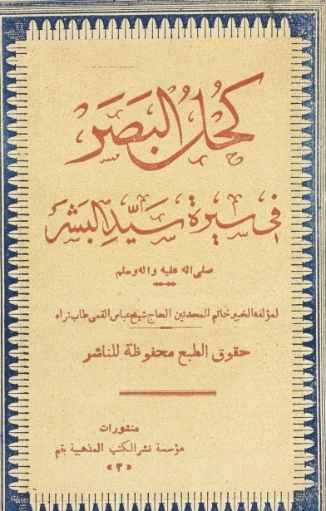 كُحْلُ البَصَرِ
في سيرة سَيّدِ البَشَر
صلى الله عليه واله وسلم
لمؤلفه الخبير خاتم المحدثين الحاج شيخ عباس القمى طاب ثراه
حقوق الطبع محفوظة للناشر
منشورات
مؤسسة نشر الكتب المذهبية بقم
«٣»